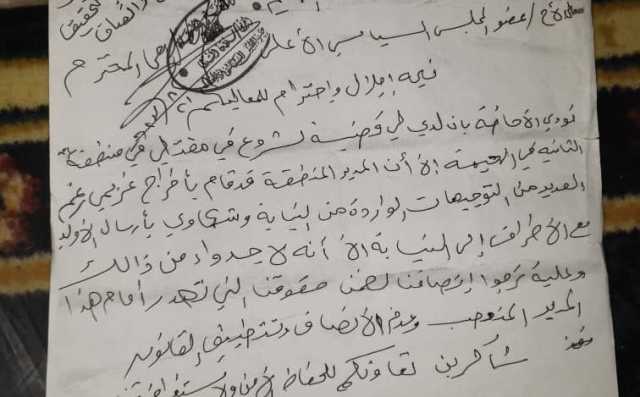 والضاف
الأخ / عضو المجلس السياسي الأعلى المحترم
تحية إجلال وإحترام لمعاليكم
نودي الأحاطة بان لدي لي قضية لشروع في مقتلي في منطقة
الثانيه في إلا أن المدير المنطقة قد قام بأخراج غريمي رغم
العديد من التوجيهات الواردة من النيابة وشكاوي بأرسال الأوليات
مع الأطراف إلى النيابة الا أنه لا جدواء من ذالك
وعلية نرجوا إنصافنا لضمن حقوقنا التي تهدر أمام هذا
المدير المتعصب وعدم الانصاف وتطبيق القانون
شاكرين تعاونكم للحفاظ الأمن